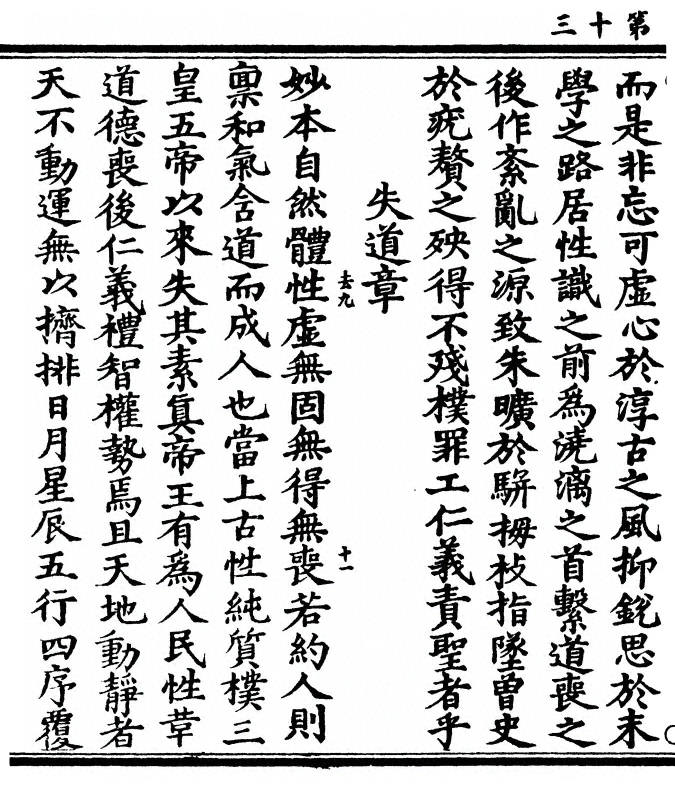 第十三
而是非忘可虛心於淳古之風抑銳思於末
學之路居性識之前爲澆漓之首繫道喪之
後作紊亂之源致朱曠於駢拇枝指墜曾史
於疣贅之殃得不殘樸罪工仁義責聖者乎
失道章
去九
十一
妙本自然體性虛無固無得無喪若約人則
稟和氣含道而成人也當上古性純質樸三
皇五帝以來失其素真帝王有爲人民性革
道德喪後仁義禮智權勢焉且天地動靜者
天不動運無以擠排日月星辰五行四序覆